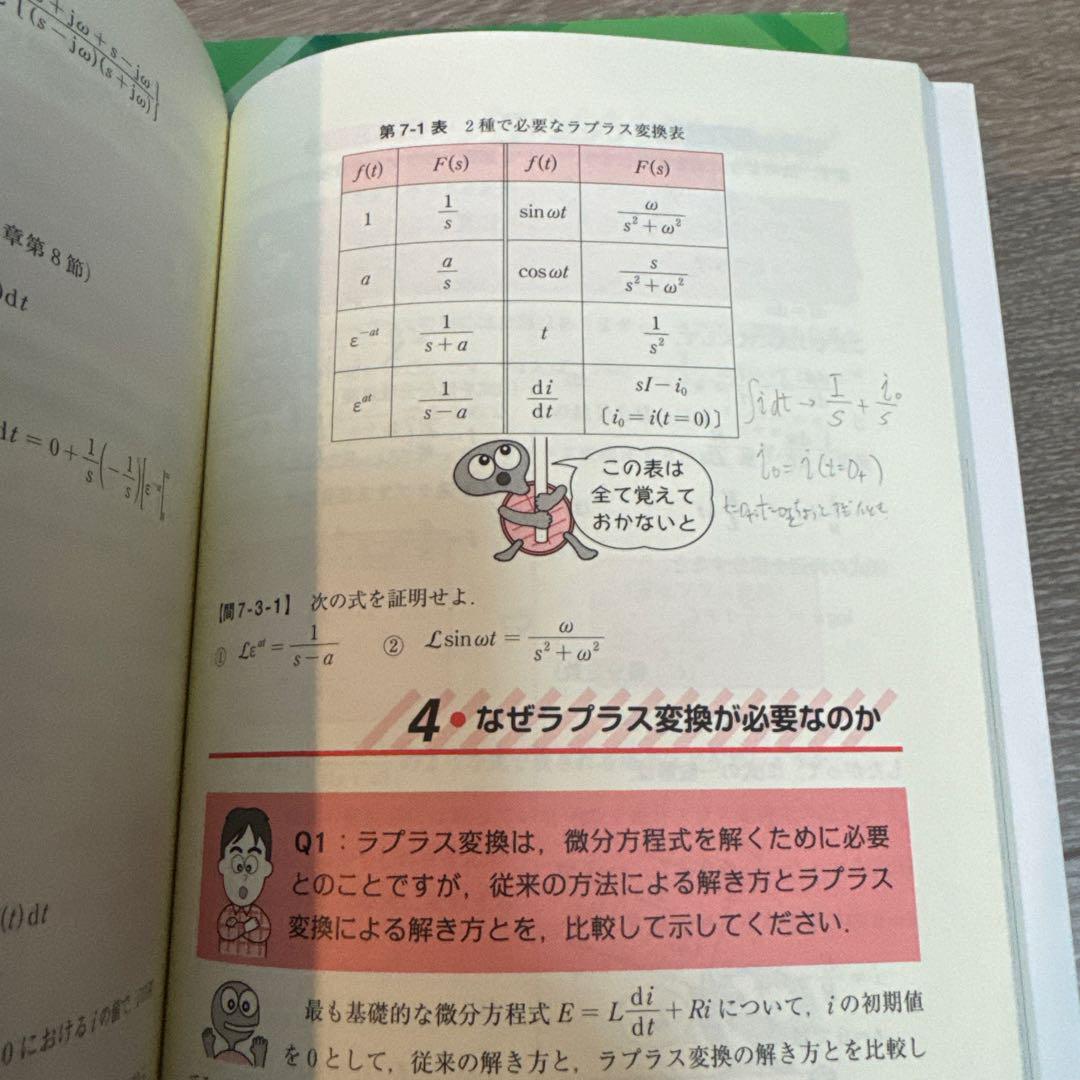 章第8節)
dt
(t)dt
第7-1表 2種で必要なラプラス変換表
f(t) F(s) f(t) F(s)
1 1/s sinωt ω/(s²+ω²)
a a/s cosωt s/(s²+ω²)
ε^{-at} 1/(s+a) t 1/s²
ε^{at} 1/(s-a) di/dt sI-i₀ 〔i₀=i(t=0)〕
∫i dt → I/s + i₀/s
i₀=i(t=0₊)
この表は
全て覚えて
おかないと
【問7-3-1】 次の式を証明せよ.
① ℒε^{at}=1/(s-a) ② ℒsinωt=ω/(s²+ω²)
4・なぜラプラス変換が必要なのか
Q1:ラプラス変換は,微分方程式を解くために必要
とのことですが,従来の方法による解き方とラプラス
変換による解き方とを,比較して示してください.
最も基礎的な微分方程式 E=L di/dt+Ri について,iの初期値
を0として,従来の解き方と,ラプラス変換の解き方とを比較し